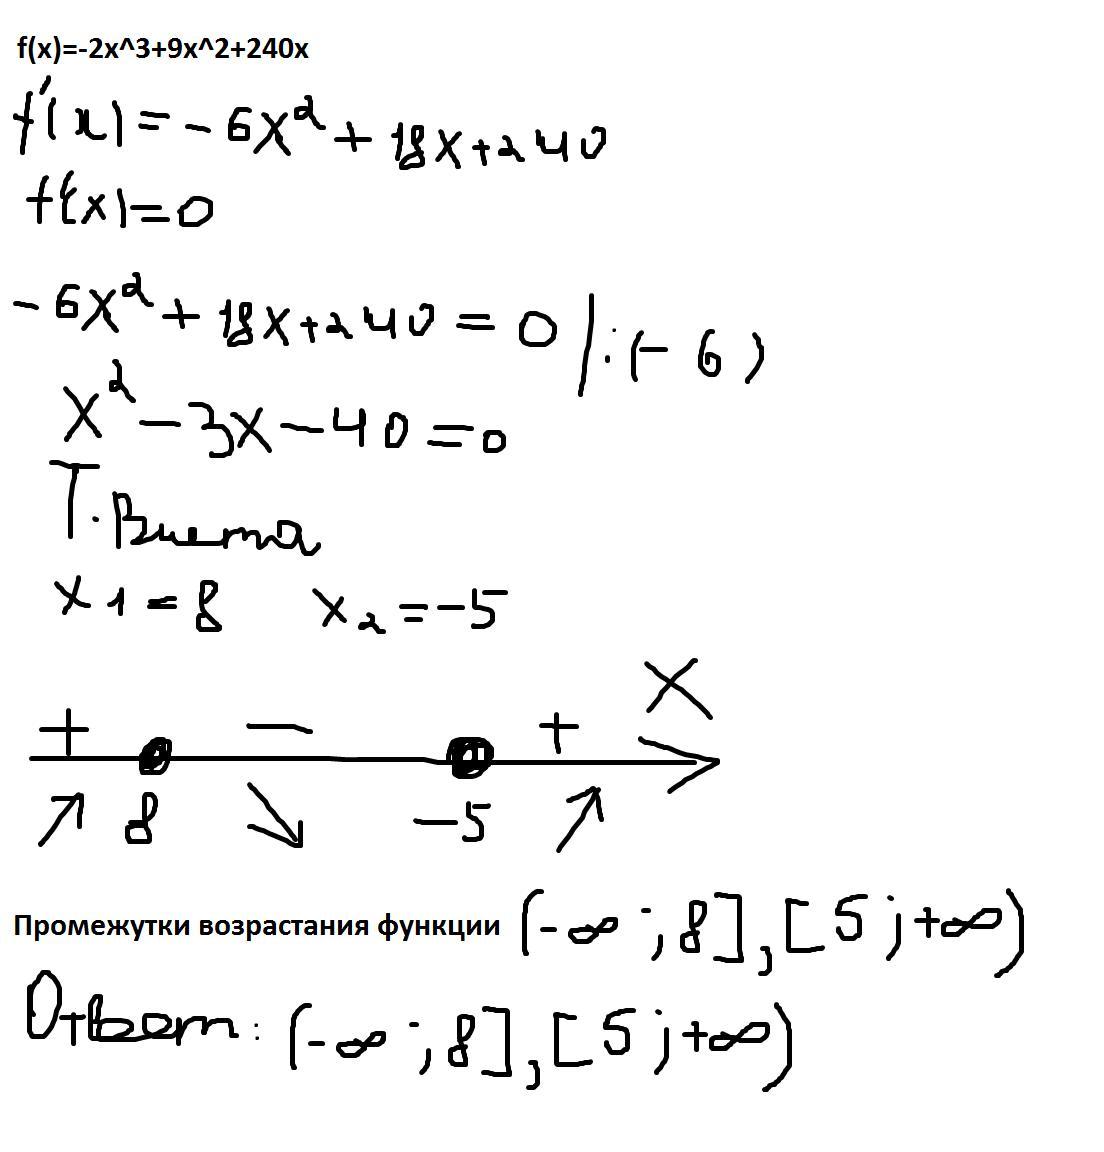 f(x)=-2x^3+9x^2+240x
f'(x)=-6x²+18x+240
f'(x)=0
-6x²+18x+240=0 |:(-6)
x²-3x-40=0
Т. Виета
x1=8 x₂=-5
+ - + X
8 -5
Промежутки возрастания функции (-∞;8],[5;+∞)
Ответ: (-∞;8],[5;+∞)